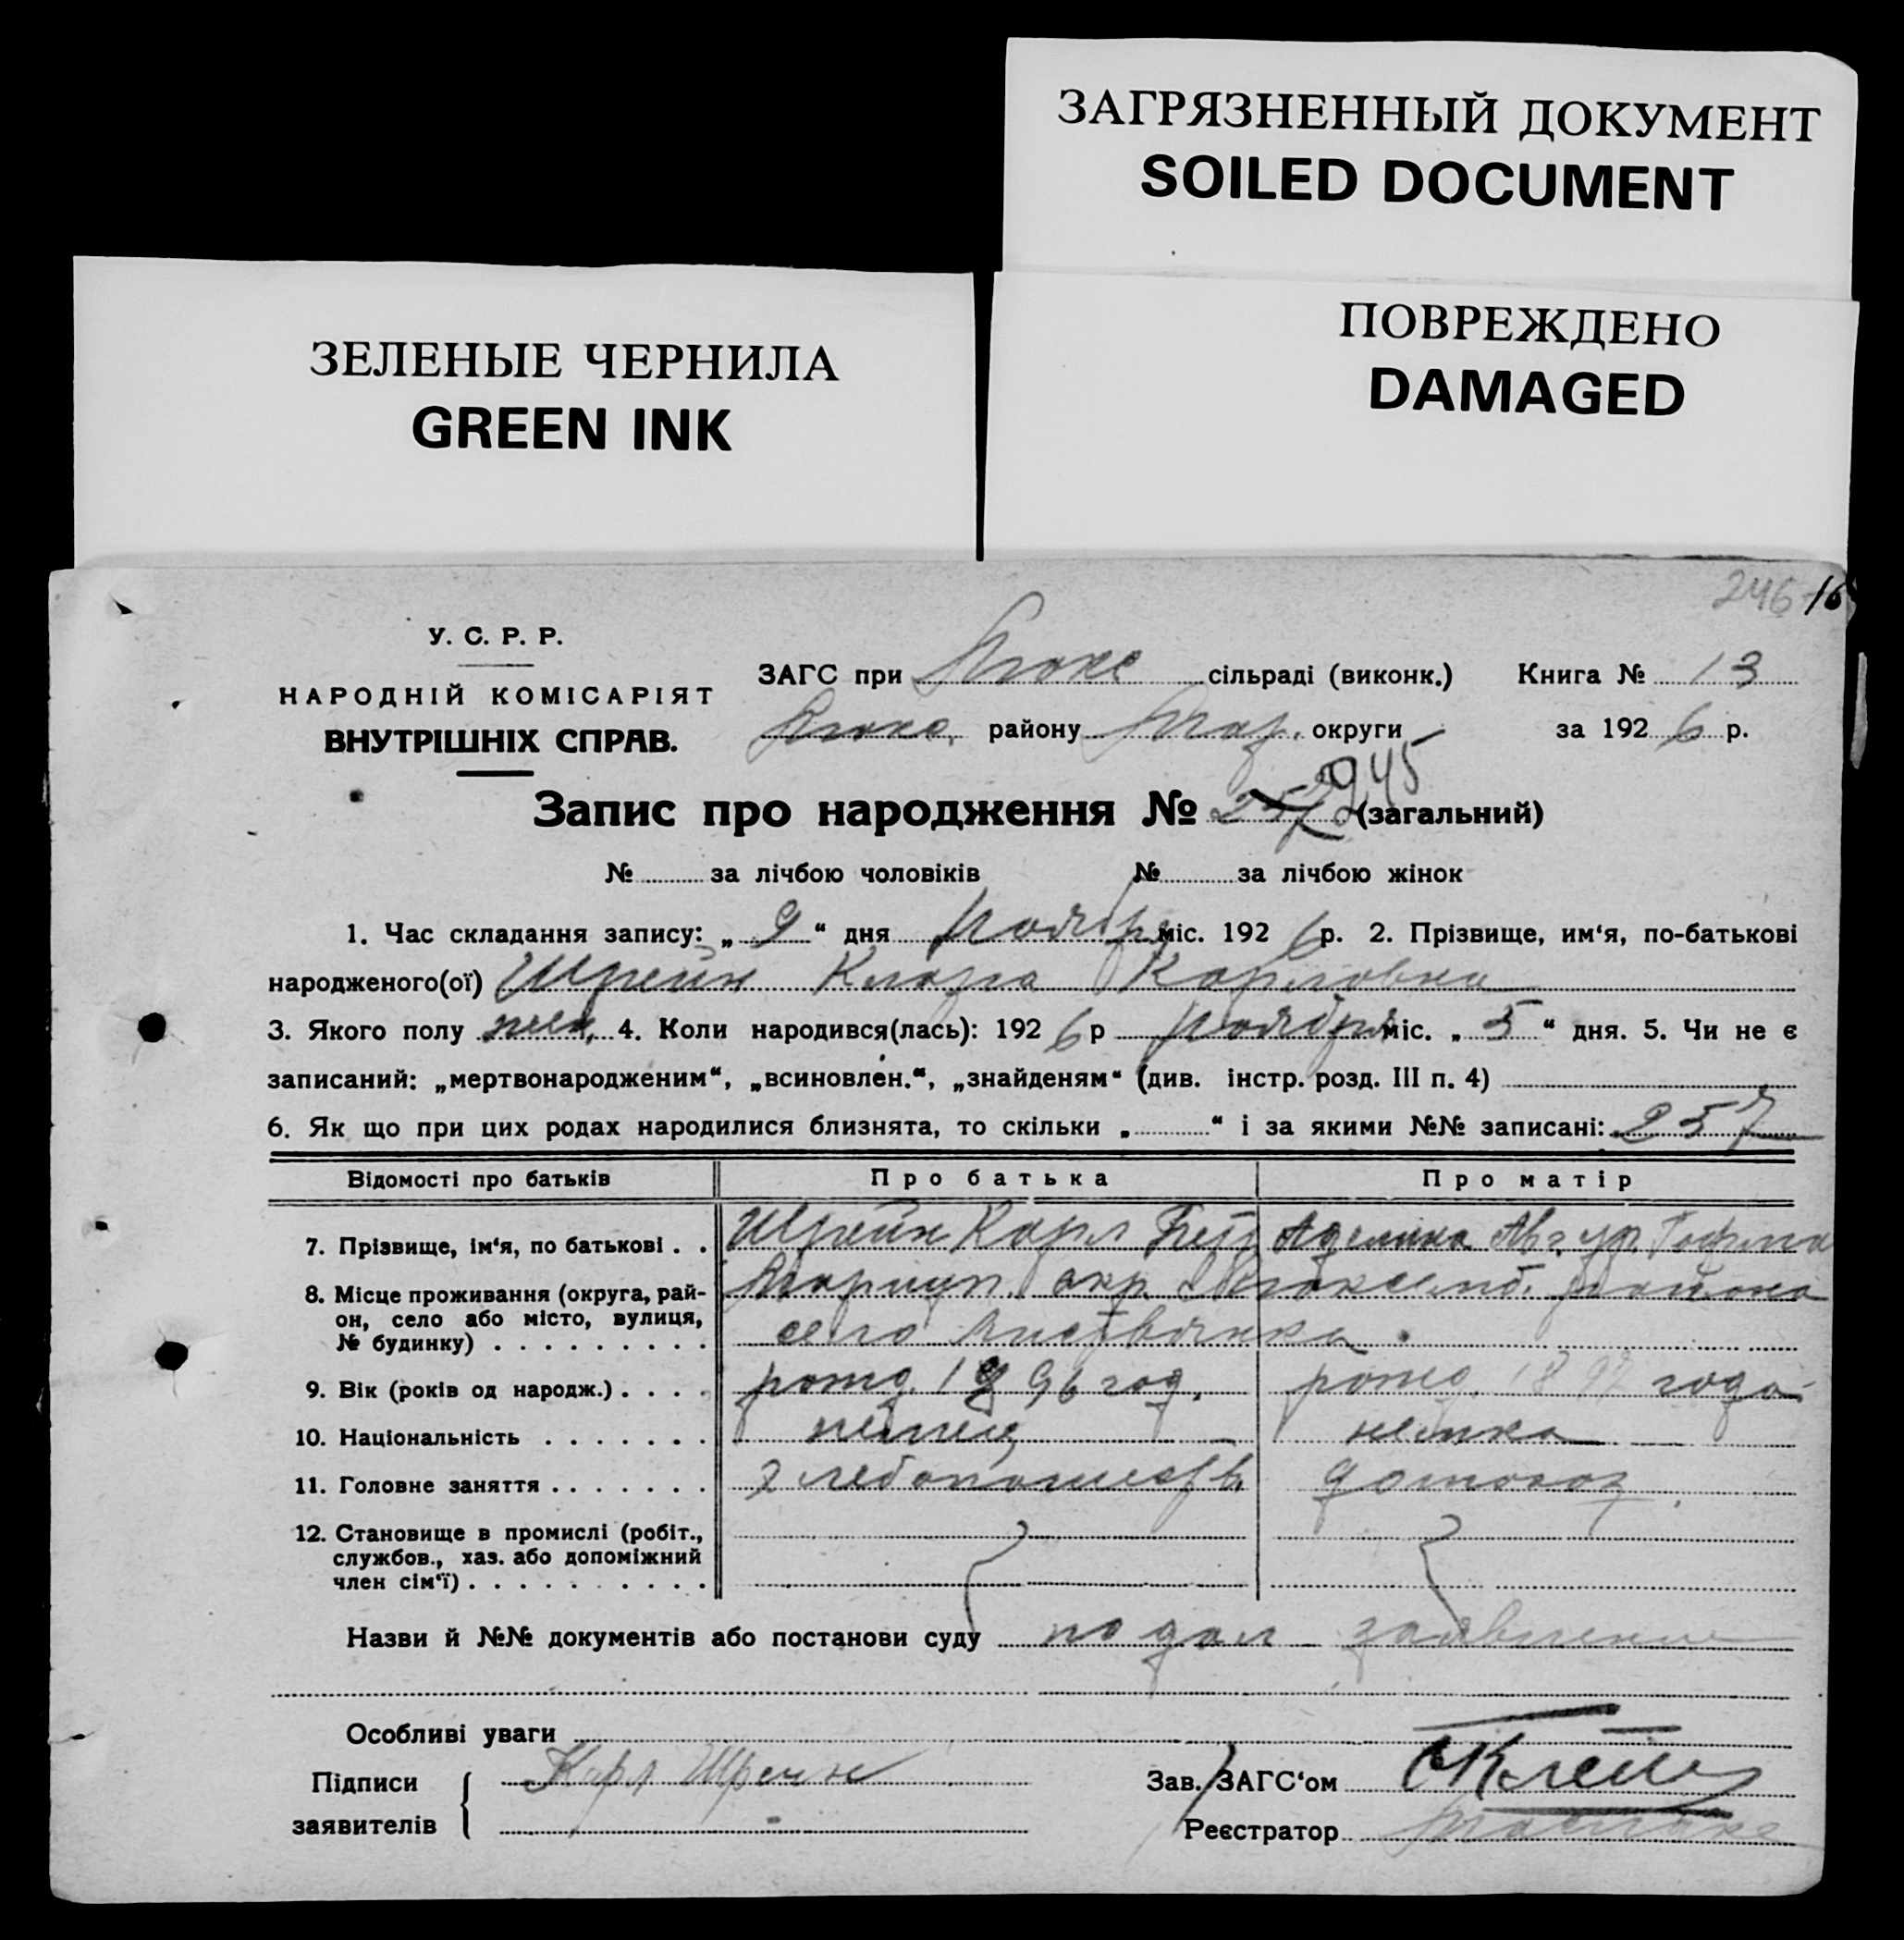 ЗАГРЯЗНЕННЫЙ ДОКУМЕНТ
SOILED DOCUMENT
ЗЕЛЕНЫЕ ЧЕРНИЛА
GREEN INK
ПОВРЕЖДЕНО
DAMAGED
246 16
У. С. Р. Р.
НАРОДНІЙ КОМІСАРІЯТ
ВНУТРІШНІХ СПРАВ.
ЗАГС при Люкс сільраді (виконк.) Книга № 13
Люкс. району Мар. округи за 1926 р.
Запис про народження № 257 245 (загальний)
№ за лічбою чоловіків № за лічбою жінок
1. Час складання запису: „ 9 “ дня Ноябр міс. 1926 р. 2. Прізвище, им‘я, по-батькові
народженого(ої) Шрейн Клара Карловна
3. Якого полу жен. 4. Коли народився(лась): 1926 р Ноября міс. „ 5 “ дня. 5. Чи не є
записаний: „мертвонародженим“, „всиновлен.“, „знайденям“ (див. інстр. розд. III п. 4)
6. Як що при цих родах народилися близнята, то скільки „ “ і за якими №№ записані: 257
Відомості про батьків Про батька Про матір
7. Прізвище, ім‘я, по батькові . . Шрейн Карл Петр Аделина Авг. ур. Гофма
8. Місце проживання (округа, рай-
он, село або місто, вулиця,
№ будинку) . . . . . . . . . Мариуп. окр. Люксемб. района
село
9. Вік (років од народж.) . . . . рожд. 1896 год. рожд. 1892 года
10. Національність . . . . . . . немец немка
11. Головне заняття . . . . . . . хлебопашеств. домохоз.
12. Становище в промислі (робіт.,
службов., хаз. або допоміжний
член сім‘ї) . . . . . . . . . .
Назви й №№ документів або постанови суду подал заявление
Особливі уваги
Підписи
заявителів Карл Шрейн
Зав. ЗАГС‘ом
Реєстратор